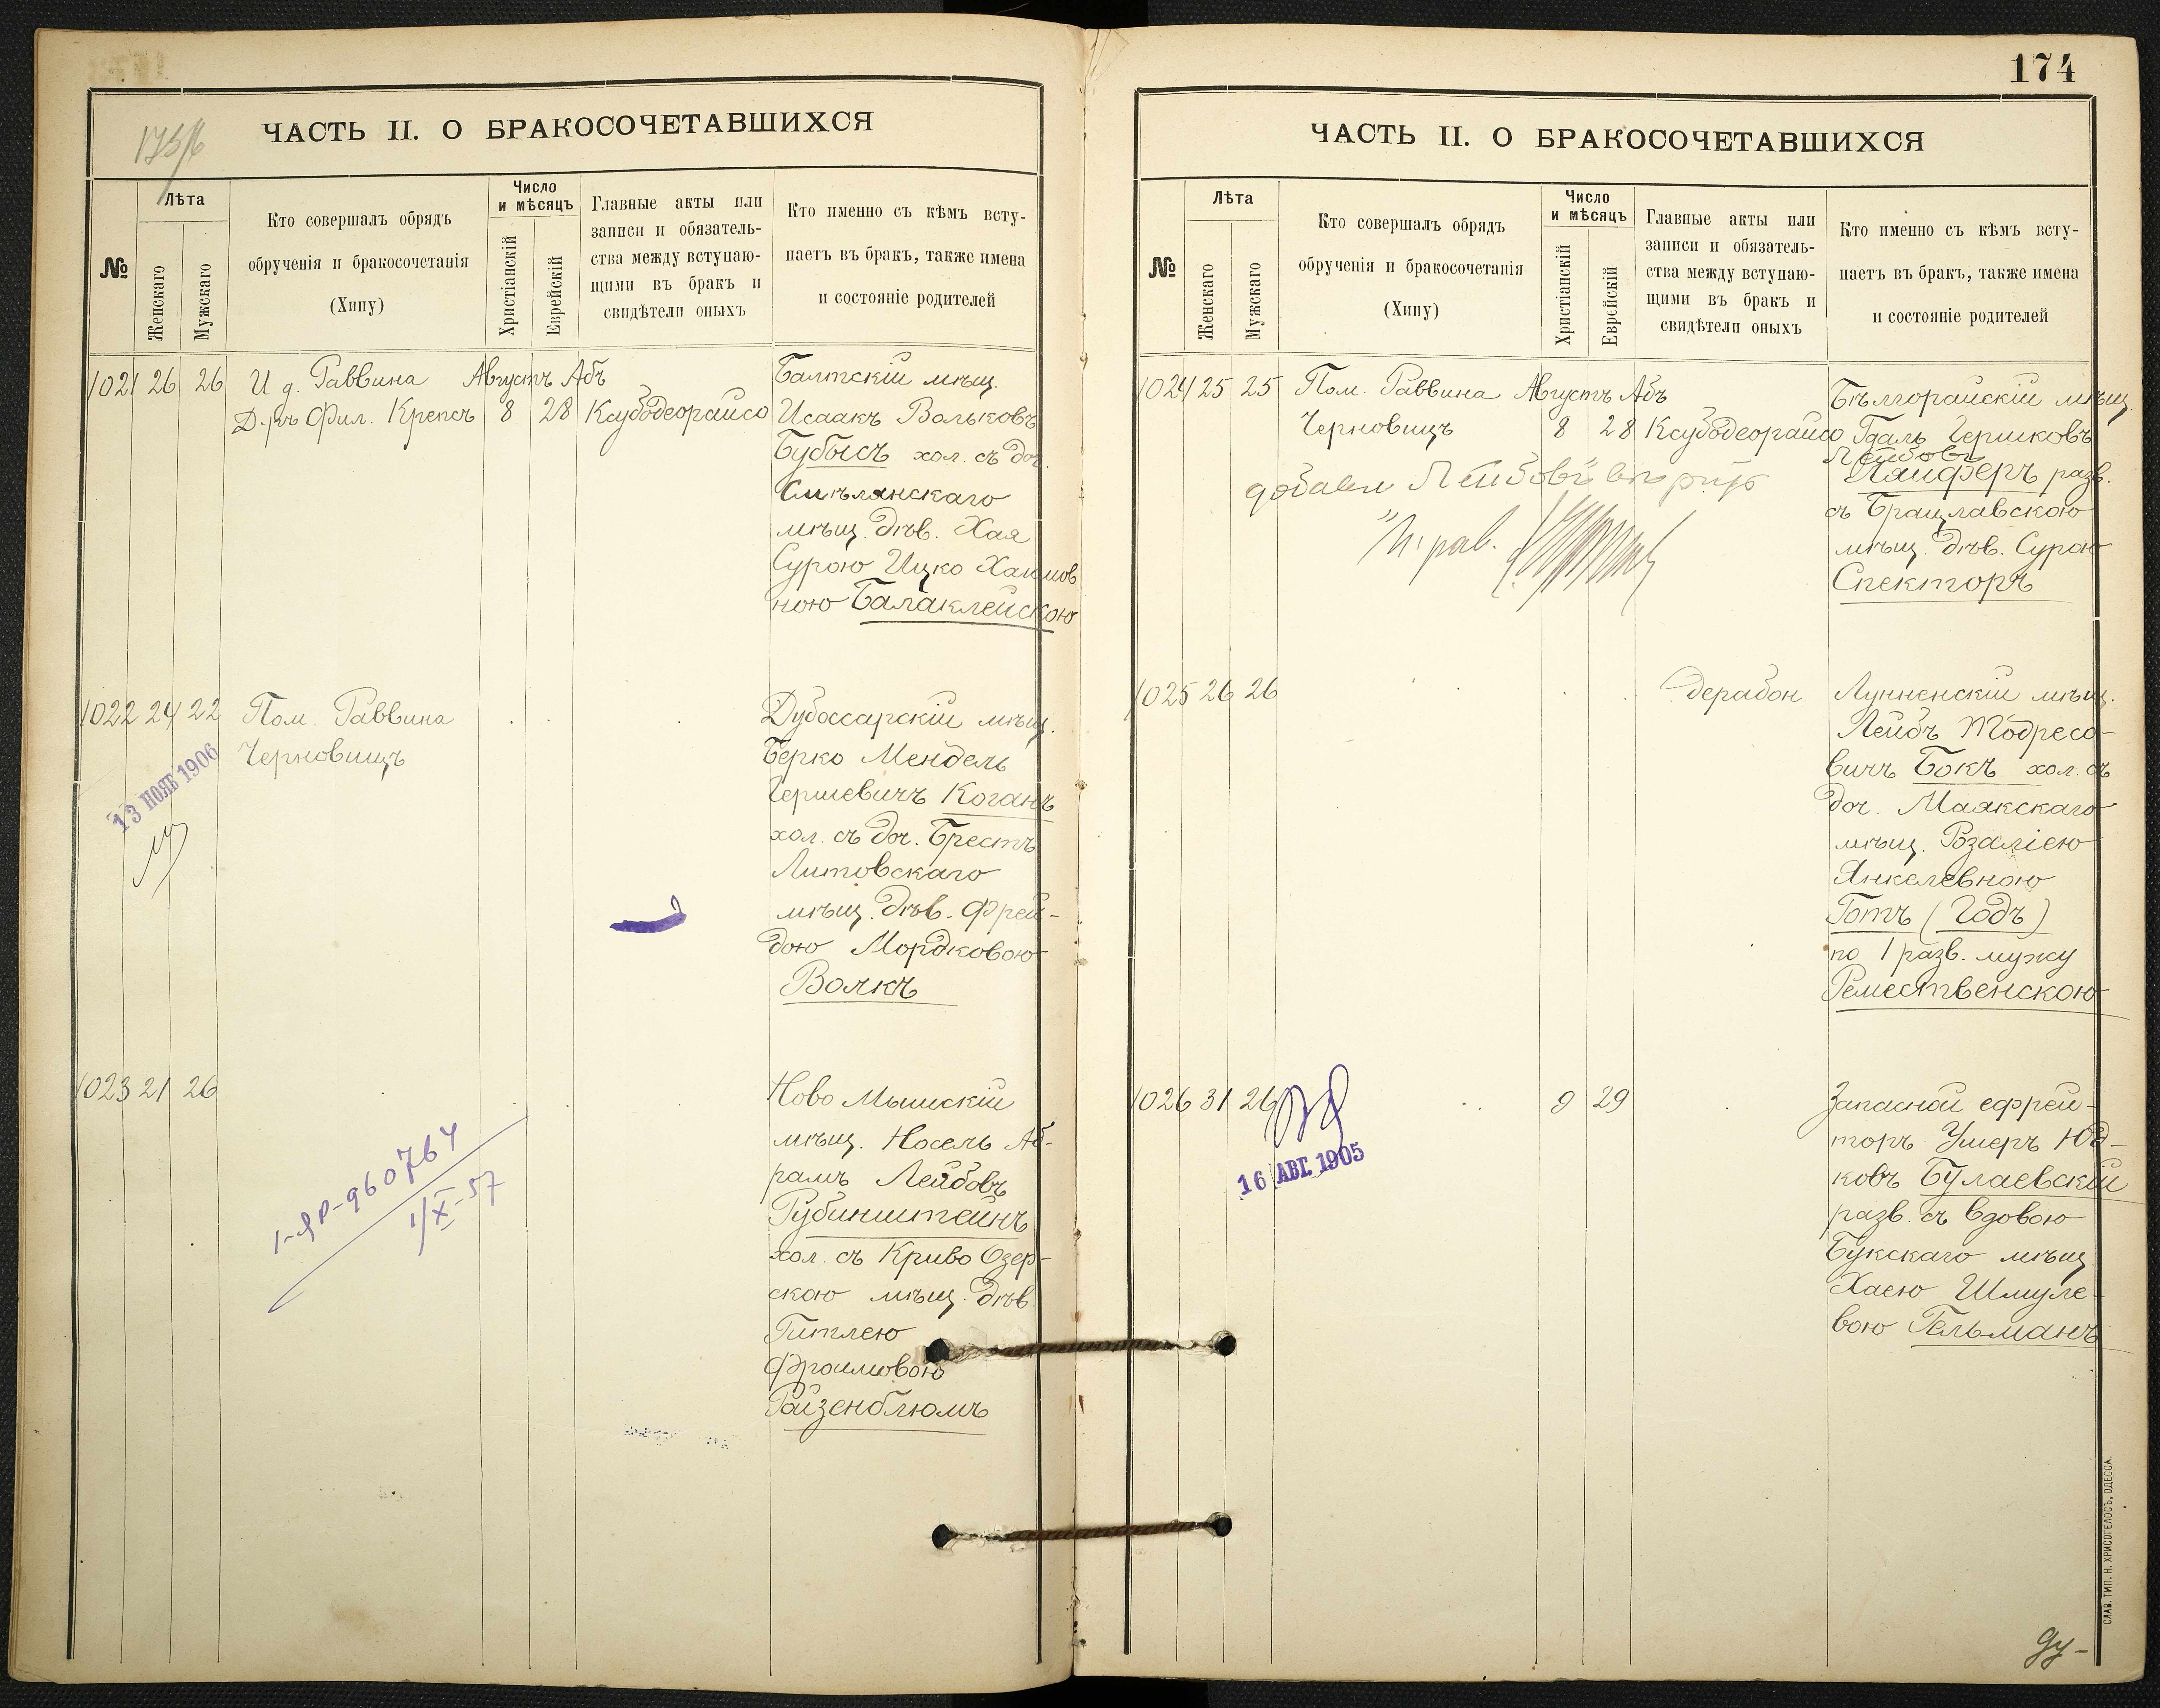 173/6
ЧАСТЬ II. О БРАКОСОЧЕТАВШИХСЯ
№
Лѣта
Женскаго
Мужскаго
Кто совершалъ обрядъ
обрученія и бракосочетанія
(Хипу)
Число
и мѣсяцъ
Христіанскій
Еврейскій
Главные акты или
записи и обязатель-
ства между вступаю-
щими въ бракъ и
свидѣтели оныхъ
Кто именно съ кѣмъ всту-
паетъ въ бракъ, также имена
и состояніе родителей
1021 26 26 И д. Раввина Августъ Абъ
Д-ръ Фил. Крепсъ 8 28 Ксубодеорайсо
Балтскій мѣщ.
Исаакъ Вольковъ
Бубысъ хол. съ доч.
Смѣлянскаго
мѣщ. дѣв. Хая
Сурою Ицко Хаимов
ною Балаклейскою
1022 24 22 Пом. Раввина
Черновицъ
13 НОЯБ 1906
Дубоссарскій мѣщ.
Берко Мендель
Гершевичъ Коганъ
хол. съ доч. Брестъ
Литовскаго
мѣщ. дѣв. Фрей-
дою Мордковою
Волкъ
1023 21 26
1-ЯР-960764
1/X-57
Ново Мышскій
мѣщ. Носель Аб-
рамъ Лейбовъ
Рубинштейнъ
хол. съ Криво Озер-
скою мѣщ. дѣв.
Гитлею
Фроимовою
Райзенблюмъ
174
ЧАСТЬ II. О БРАКОСОЧЕТАВШИХСЯ
№
Лѣта
Женскаго
Мужскаго
Кто совершалъ обрядъ
обрученія и бракосочетанія
(Хипу)
Число
и мѣсяцъ
Христіанскій
Еврейскій
Главные акты или
записи и обязатель-
ства между вступаю-
щими въ бракъ и
свидѣтели оныхъ
Кто именно съ кѣмъ всту-
паетъ въ бракъ, также имена
и состояніе родителей
1024 25 25 Пом. Раввина Августъ Абъ
Черновицъ 8 28 Ксубодеорайсо
Лейбовъ
Бѣлгорайскій мѣщ.
Гдаль Гершковъ
Лейбовъ
Пайферъ разв.
съ Брацлавскою
мѣщ. дѣв. Сурою
Спекторъ
1025 26 26 дерабон
Лунненскій мѣщ.
Лейбъ Тодресо-
вичъ Бокъ хол. съ
доч. Маякскаго
мѣщ. Розаліею
Янкелевною
Готъ (Годъ)
по 1 разв. мужу
Ремественскою
1026 31 26 9 29
16 АВГ. 1905
Запасной ефрей-
торъ Умеръ Юд-
ковъ Булаевскій
разв. съ вдовою
Букскаго мѣщ.
Хаею Шмуле-
вою Гельманъ
СЛАВ. ТИП. Н. ХРИСОГЕЛОСЪ, ОДЕССА.